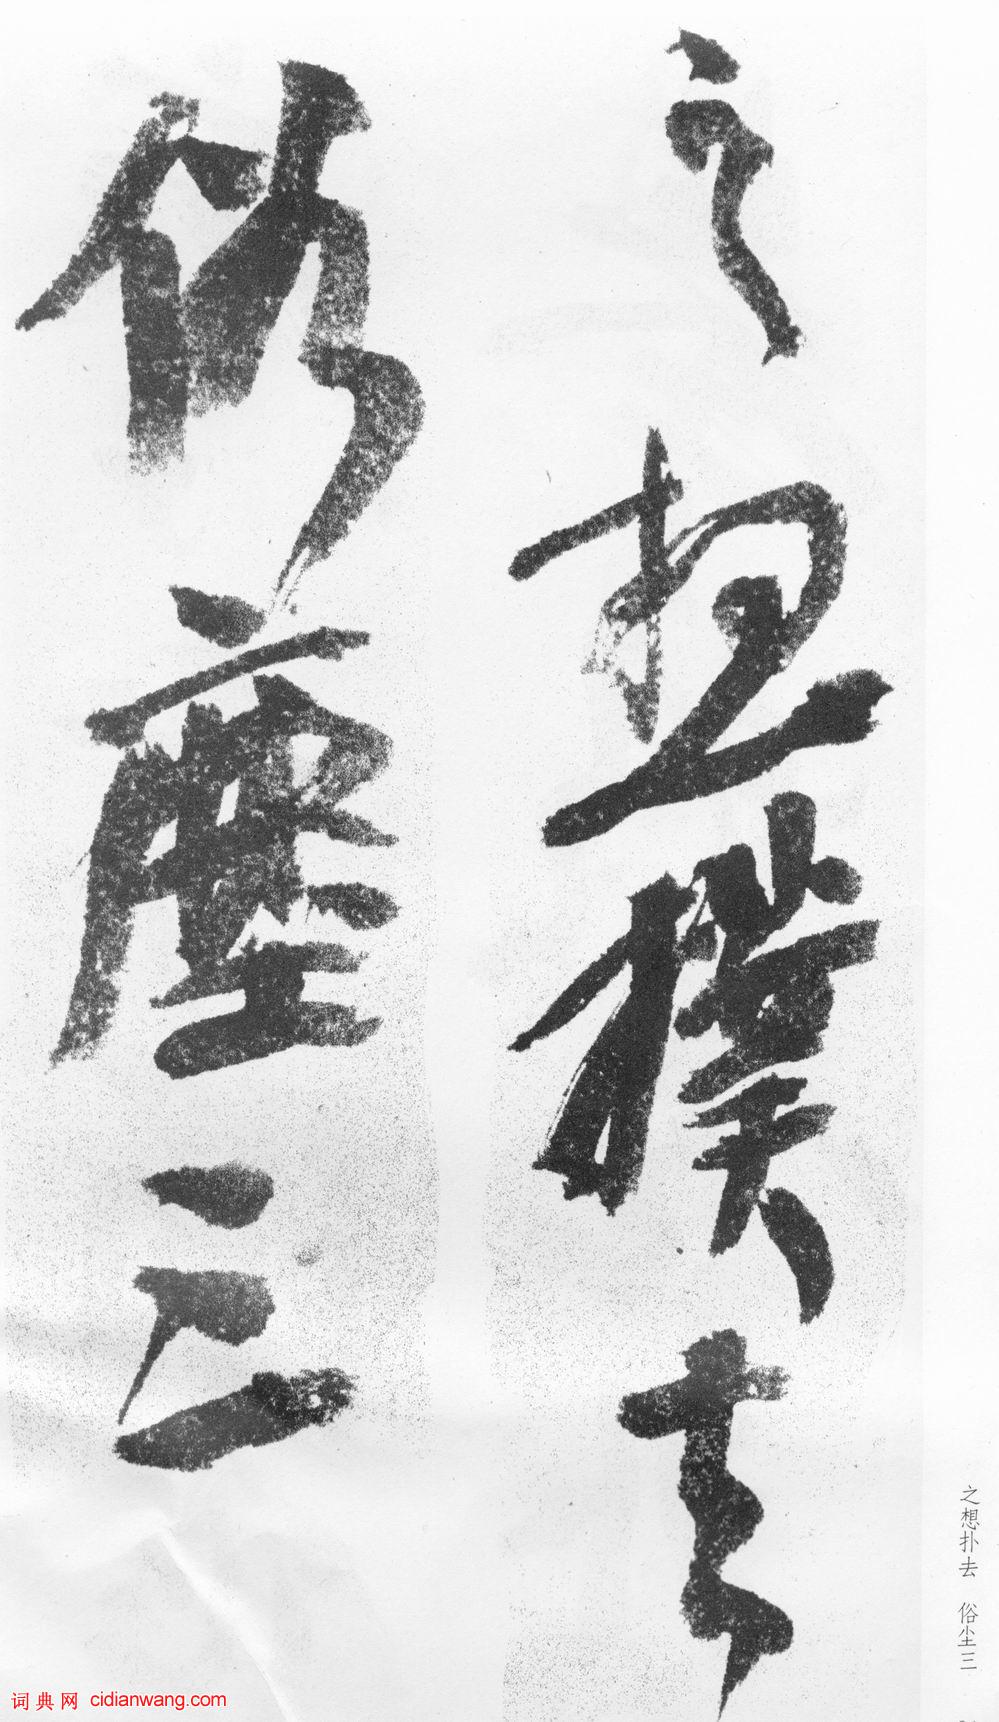 之想撲去
俗塵三
之想扑去 俗尘三
词典网 cidianwang.com